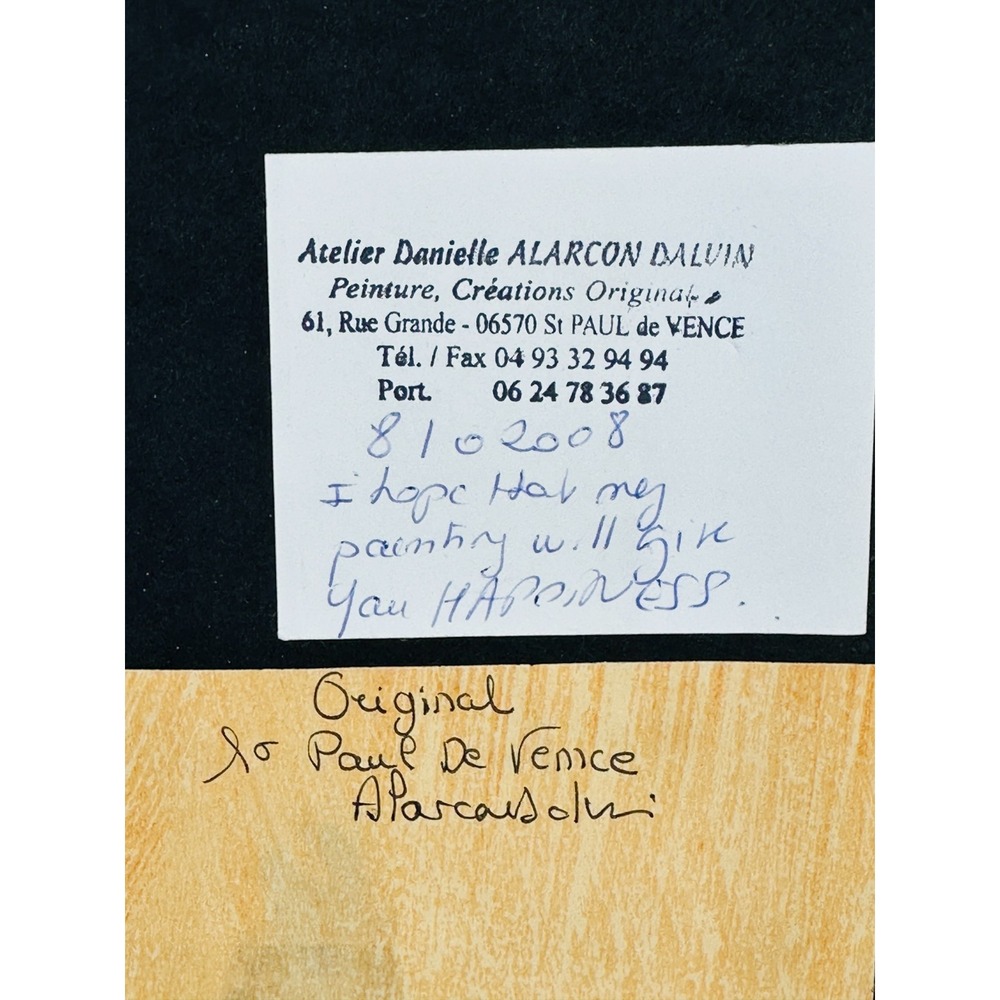 Atelier Danielle ALARCON DALVIN
Peinture, Créations Original
61, Rue Grande - 06570 St PAUL de VENCE
Tél. / Fax 04 93 32 94 94
Port. 06 24 78 36 87
8 10 2008
I hope that my
painting will give
you HAPPINESS.
Original
Paul De Vence
AlarconDalvin